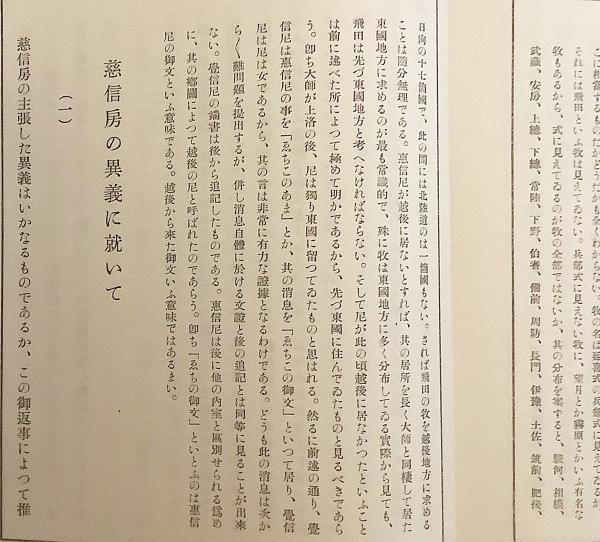 こに相當するものだかどうだかも全くわからない。牧の名は延喜式の兵部式に見えてゐるが
それには飛田といふ牧は見えてゐない。兵部式に見えない牧に、望月とか霧原とかいふ有名な
牧もあるから、式に見えてゐるのが牧の全部ではないか、其の分布を案すると、駿河、相模、
武藏、安房、上總、下總、常陸、下野、伯耆、備前、周防、長門、伊豫、土佐、筑前、肥後、
日向の十七箇國で、此の間には北陸道のは一箇國もない。されば飛田の牧を越後地方に求める
ことは隨分無理である。惠信尼が越後に居ないとすれば、其の居所を長く大師と同棲して居た
東國地方に求めるのが最も常識的で、殊に牧は東國地方に多く分布してゐる實際から見ても、
飛田は先づ東國地方と考へなければならない。そして尼が此の頃越後に居なかつたといふこと
は前に述べた所によつて極めて明かであるから、先づ東國に住んでゐたものと見るべきであら
う。卽ち大師が上洛の後、尼は獨り東國に留つてゐたものと思はれる。然るに前述の通り、覺
信尼は惠信尼の事を「ゑちこのあま」とか、其の消息を「ゑちこの御文」といつて居り、覺信
尼は尼は女であるから、其の言は非常に有力な證據となるわけである。どうも此の消息は次か
ら〱難問題を提出するが、併し消息自體に於ける文證と後の追記とは同等に見ることが出來
ない。覺信尼の端書は後から追記したものである。惠信尼は後に他の内室と區別せられる爲め
に、其の鄕關によつて越後の尼と呼ばれたのであらう。卽ち「ゑちこの御文」といふのは惠信
尼の御文といふ意味である。越後から來た御文いふ意味ではあるまい。
慈信房の異義に就いて
（一）
慈信房の主張した異義はいかなるものであるか、この御返事によつて推